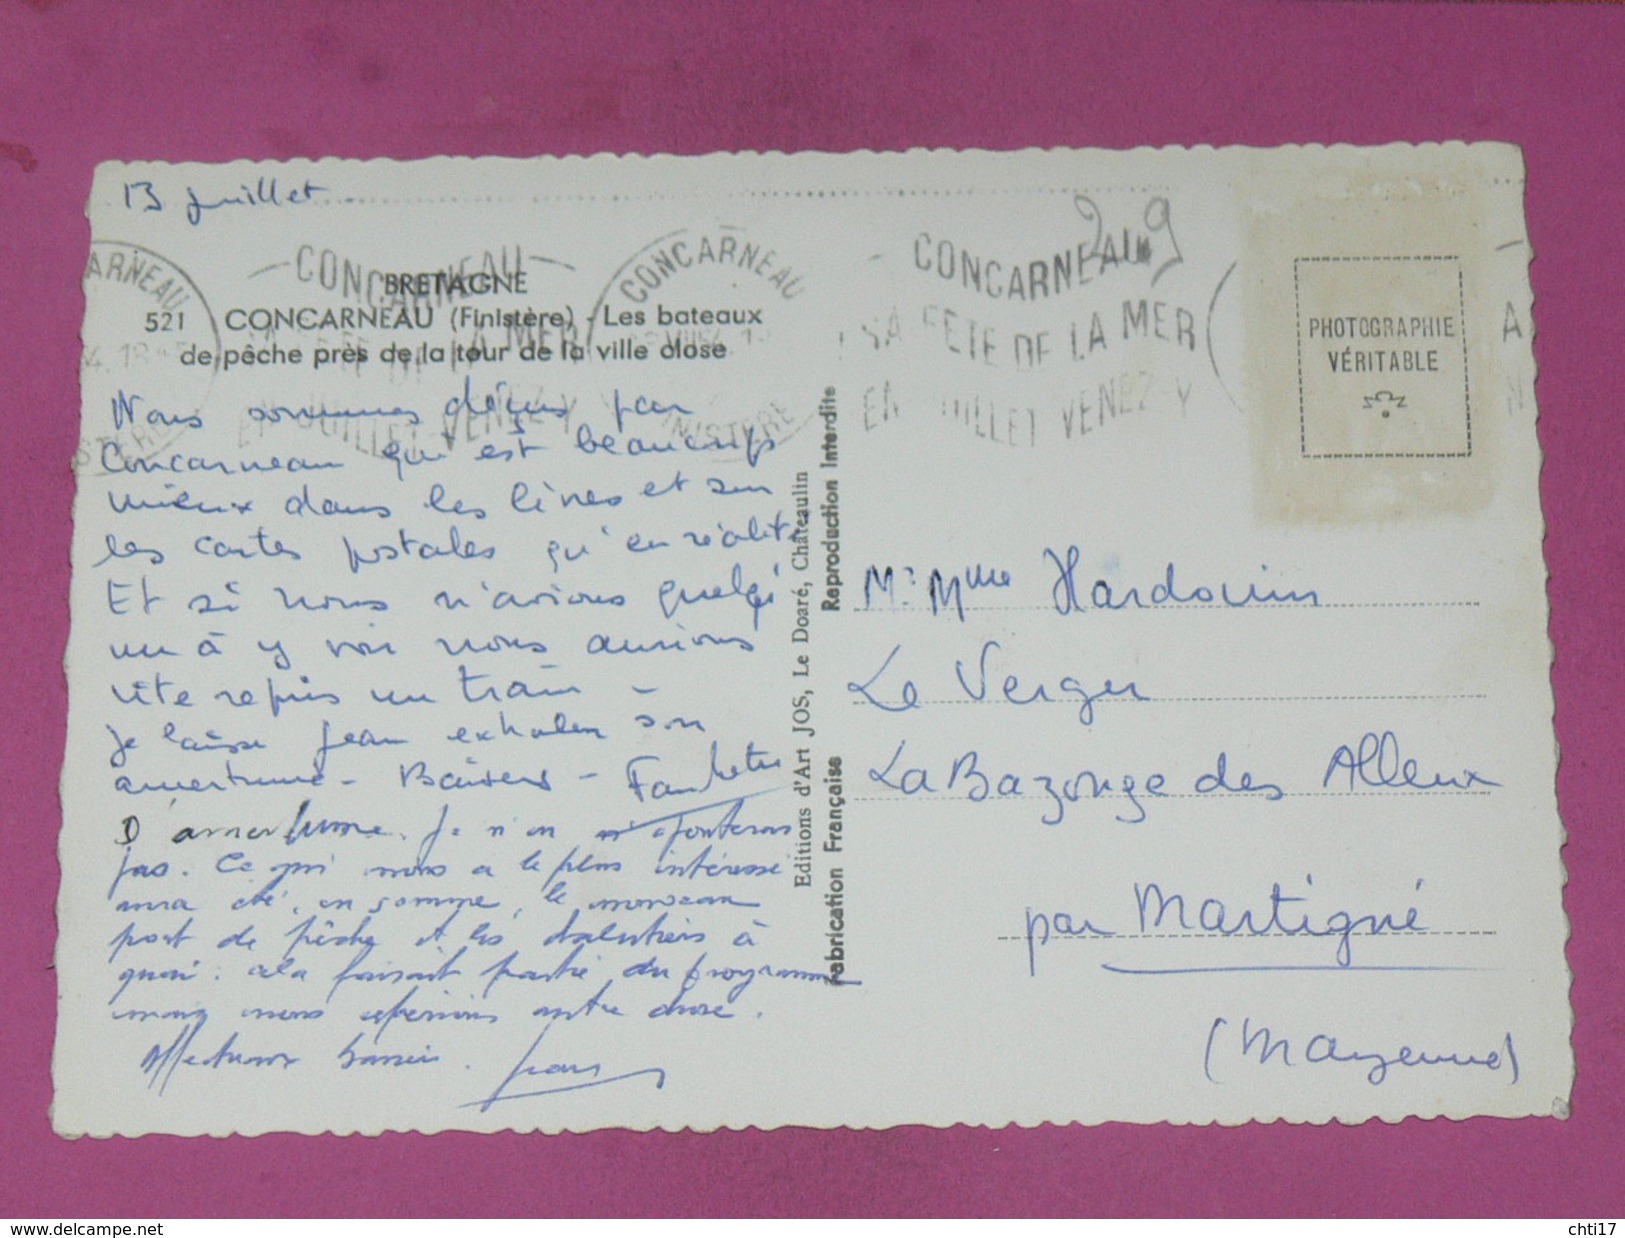 13 juillet
BRETAGNE
521 CONCARNEAU (Finistère) - Les bateaux
de pêche près de la tour de la ville close
CONCARNEAU
SA FETE DE LA MER
EN JUILLET VENEZ-Y
CONCARNEAU
FINISTERE
CONCARNEAU
SA FETE DE LA MER
EN JUILLET VENEZ-Y
29
PHOTOGRAPHIE
VÉRITABLE
Nous sommes déçus par
Concarneau qui est beaucoup
mieux dans les livres et sur
les cartes postales qu'en réalité.
Et si nous n'avions quelqu'
un à y voir nous aurions
vite repris un train -
je laisse Jean exhaler son
amertume - Baisers -
D'amertume. Je n'en ajouterai
pas. Ce qui nous a le plus intéressé
aura été, en somme, le morceau
port de pêche et les chalutiers à
quai : cela faisait partie du programme
mais nous espérions autre chose.
Affectueux baisers. Jean
Editions d'Art JOS, Le Doaré, Châteaulin
Fabrication Française Reproduction Interdite
Mr Mme Hardouin
Le Verger
La Bazouge des Alleux
par Martigné
(Mayenne)
www.delcampe.net
chti17